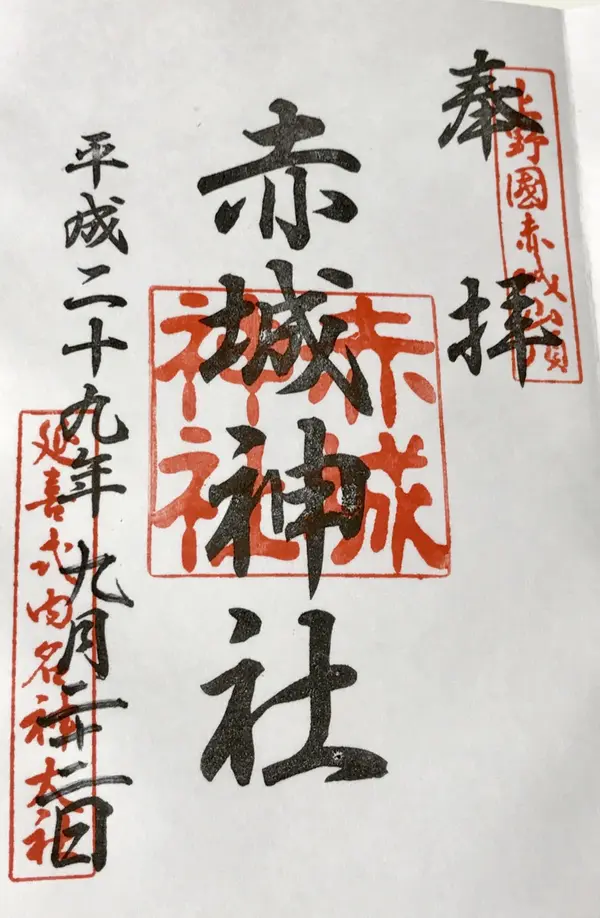 奉拝
上野國赤城山頂
赤城神社
赤城
神社
平成二十九年 九月二十二日
延喜式内名神大社